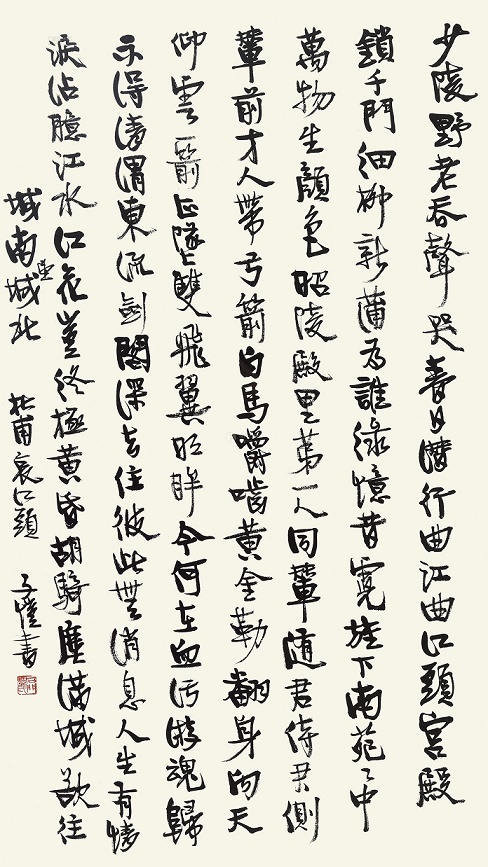 少陵野老吞聲哭春日潛行曲江曲江頭宮殿
鎖千門細柳新蒲为誰綠憶昔霓旌下南苑〻中
萬物生顏色昭陵殿里第一人同輦随君侍君側
輦前才人帶弓箭白馬嚼嚙黃金勒翻身向天
仰雲一箭正墜雙飛翼明眸今何在血污游魂歸
不得清渭東流劍閣深去住彼此無消息人生有情
淚沾臆江水江花豈終極黃昏胡騎塵滿城欲往
城南望城北 杜甫哀江頭 子愷書